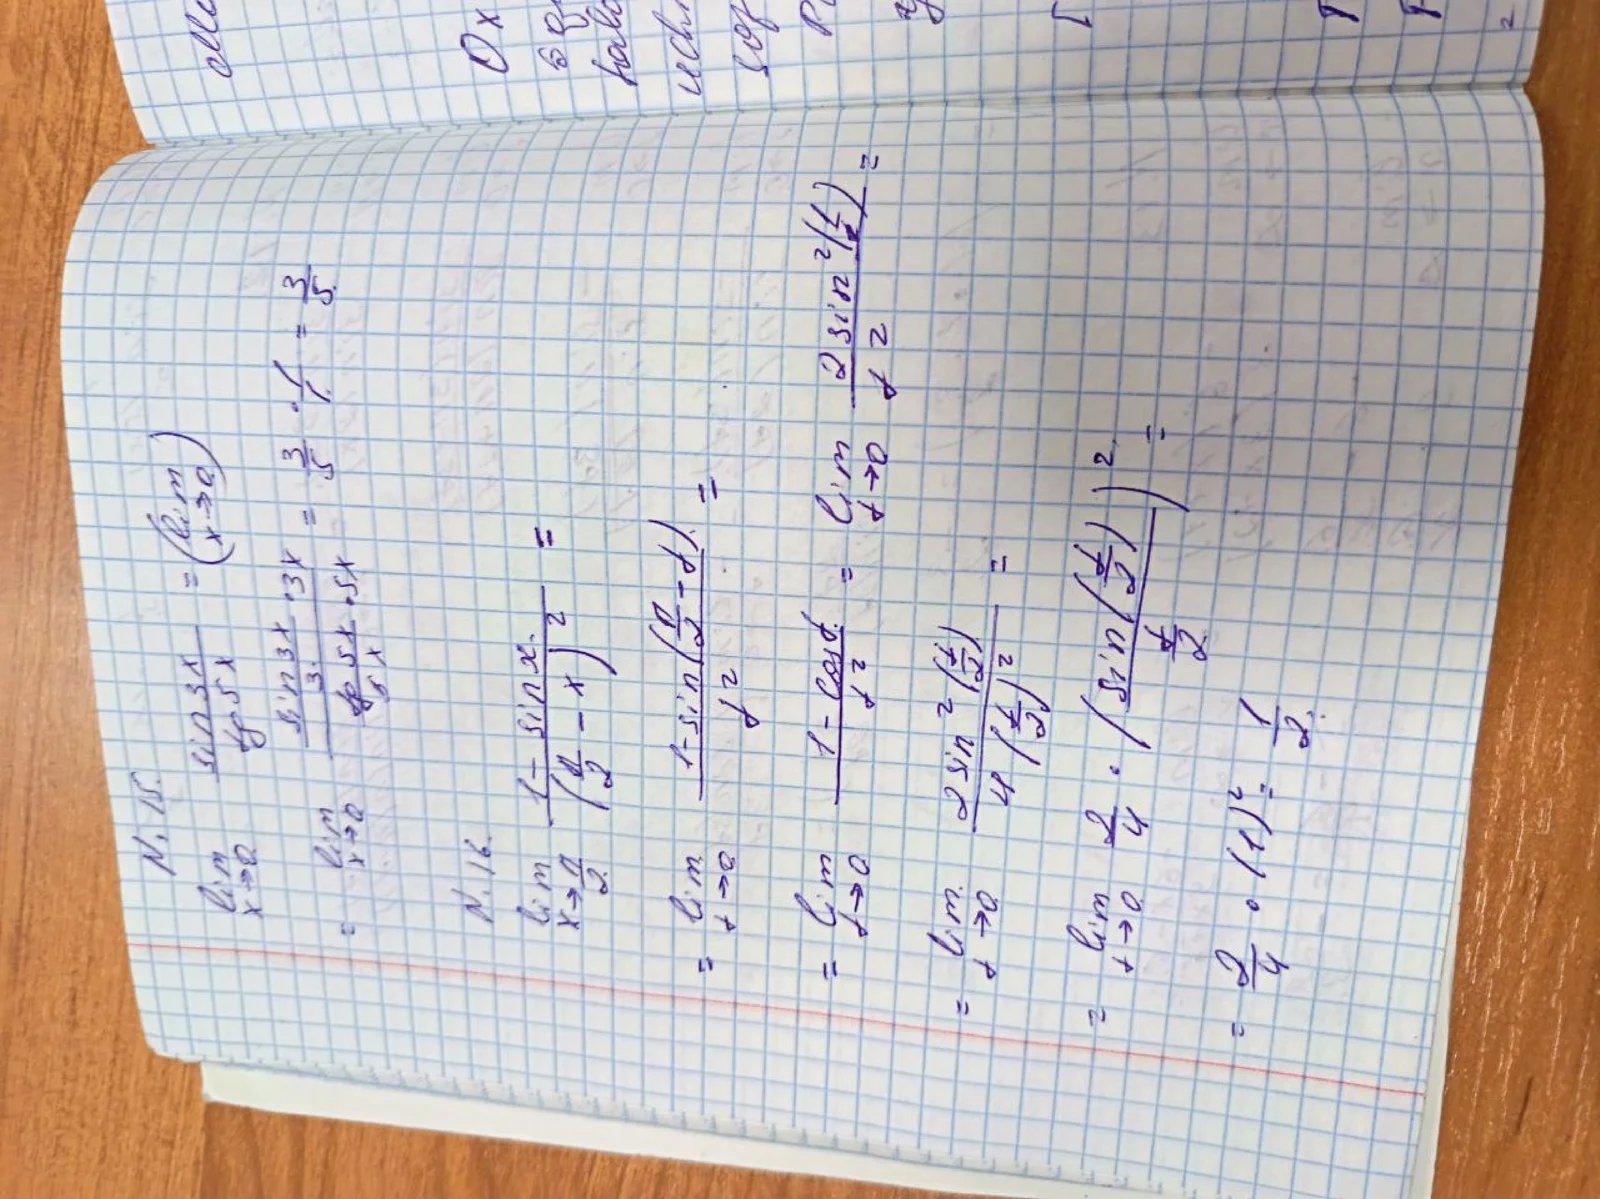 N. 15.
lim x→0 sin3x / tg5x = (lim x→0)
= lim x→0 (sin3x / 3x · 3x) / (tg5x / 5x · 5x) = 3/5 · 1/1 = 3/5.
N. 16.
lim x→π/2 (1 - sin x) / (π/2 - x)² =
= lim t→0 (1 - sin(π/2 - t)) / t² =
= lim t→0 (1 - cos t) / t² = lim t→0 2sin²(t/2) / t² =
= lim t→0 2sin²(t/2) / 4(t/2)² =
= lim t→0 2/4 · (sin(t/2) / (t/2))² =
= 2/4 · (1)² = 1/2.